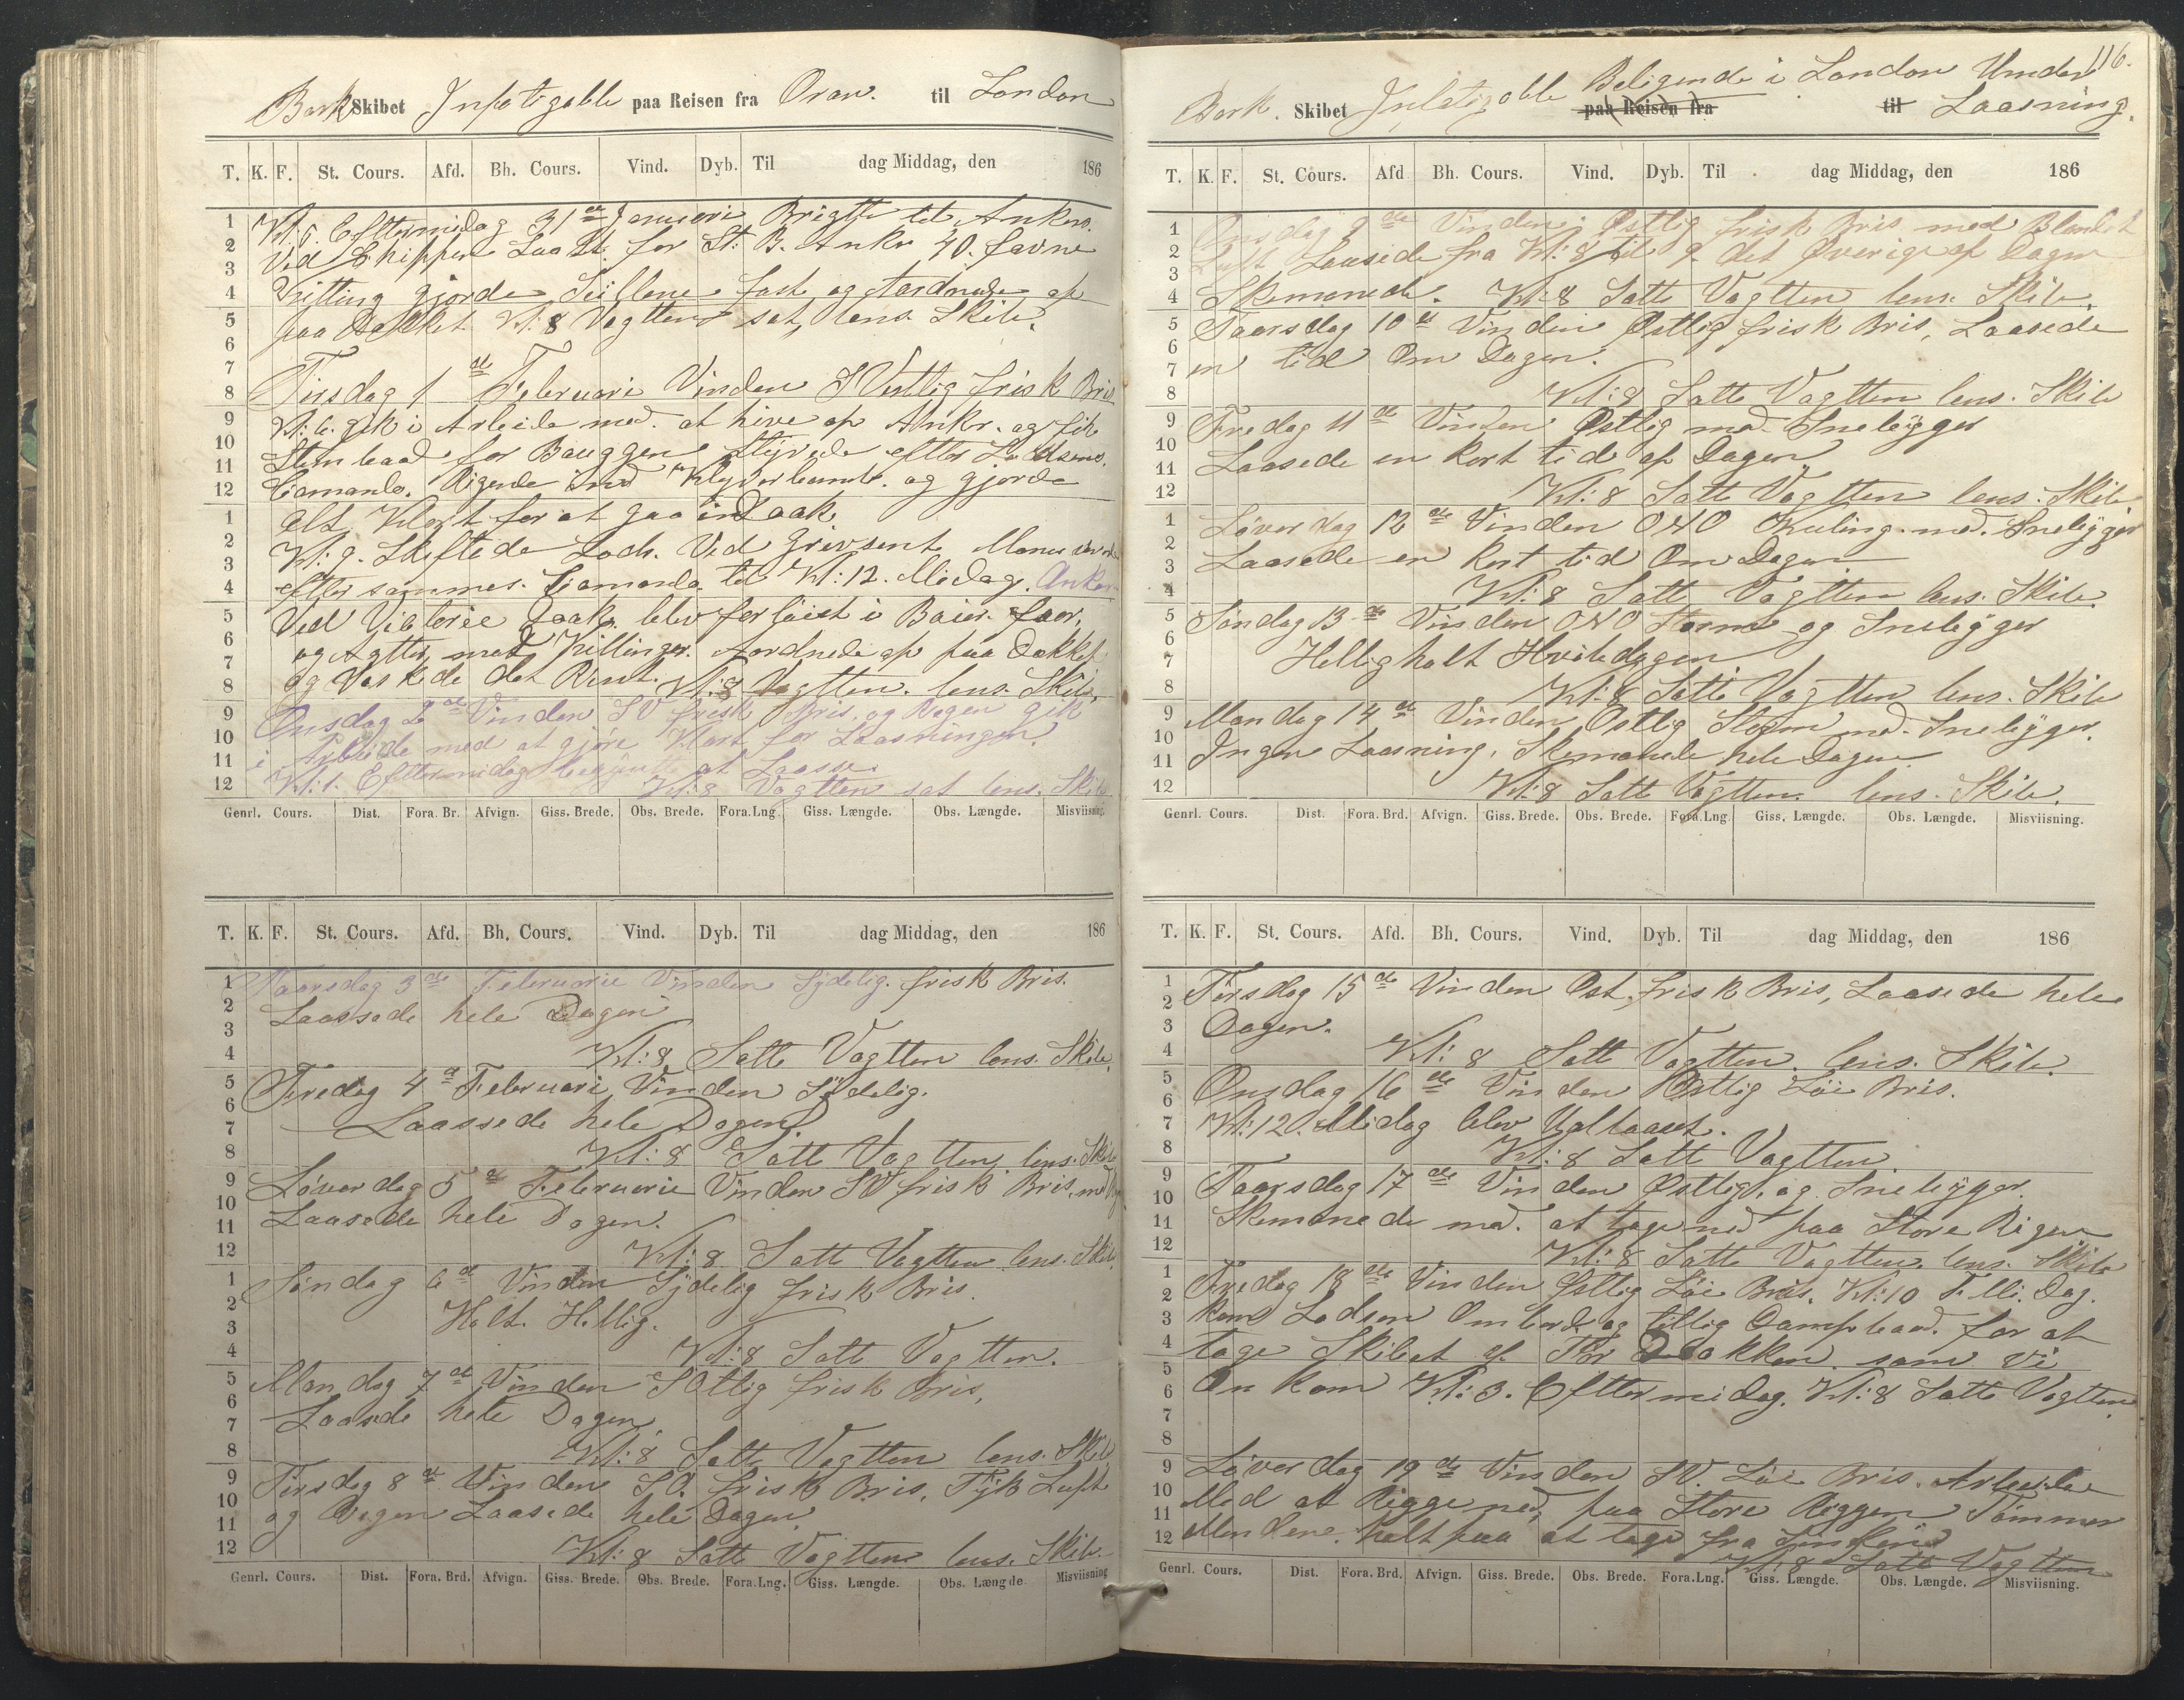 Bark Skibet Infatigable paa Reisen fra Oran. til London
T. K. F. St. Cours. Afd. Bh. Cours. Vind. Dyb. Til dag Middag, den 186
1
2
3
4
5
6
7
8
9
10
11
12
1
2
3
4
5
6
7
8
9
10
11
12
Kl: 5. Eftermidag 31te Januari Brigtte til Ankers.
Ved Skippen Laast. for St: B. Ankr 40. favne
Kitting gjorde Seillene fast og Aardnede op
paa Dækket Kl: 8 Vagtten sat, lens Skib.
Tirsdag 1de Februari Vinden S Vestlig frisk Bris
Kl: 6. gik i Arbeide med. at hive op Ankr. og fik
Stimbaad for Bauggen Styrede efter Lodsens.
Comando. Rigede ind Klyverbomb. og gjorde
alt Klart for at gaa in Daak
Kl: 9. Skiftede Lods. Ved Grevsent Manuvrerede
efter sammes. Comando til Kl: 12. Midag. Ankom
Ved Victorie Daak. blev fortöiet i Baier. for,
og Agtter med Kittinger. Aordnede op paa Dækket
og Vaskede det Rent. Kl: 8 Vagtten. lens. Skib.
Onsdag 2de Vinden SV frisk Bris, og Regen gik
i Arbeide med at gjöre Klart for Laasningen.
Kl: 1. Eftermidag begynte at Laasse.
Kl: 8 Vagtten sat lens. Skib
Genrl. Cours. Dist. Fora. Br. Afvign. Giss. Brede. Obs. Brede. Fora. Lng. Giss. Længde. Obs. Længde. Misviisning.
T. K. F. St. Cours. Afd. Bh. Cours. Vind. Dyb. Til dag Middag, den 186
1
2
3
4
5
6
7
8
9
10
11
12
1
2
3
4
5
6
7
8
9
10
11
12
Taarsdag 3de Februarie Vinden Sydelig. frisk Bris.
Laassede hele Dagen
Kl: 8 Satte Vagtten lens. Skib.
Fredag 4de Februari Vinden Sydelig.
Laassede hele Dagen
Kl: 8 Satt Vagtten. lens. Skib
Löverdag 5de Februarie Vinden SV frisk Bris. med
Laasede hele Dagen.
Kl: 8 Satt Vagtten lens. Skib.
Söndag 6de Vinden Sydelig frisk Bris.
Holt. Hellig.
Kl: 8 Satt Vagtten.
Mondag 7de Vinden SOtlig frisk Bris,
Laasede hele Dagen
Kl: 8 Satt Vagtten lens. Skib
Tirsdag 8de Vinden SO. frisk Bris, Tyk Luft
og Regen Laasede hele Dagen
Kl: 8 Satt Vagtten lens. Skib.
Genrl. Cours. Dist. Fora. Brd. Afvign. Giss. Brede. Obs. Brede. Fora. Lng. Giss. Længde. Obs. Længde Misviisning
116.
Bark. Skibet Infatigable Beligende i London Under
paa Reisen fra til Laasning.
T. K. F. St. Cours. Afd Bh. Cours. Vind. Dyb. Til dag Middag, den 186
1
2
3
4
5
6
7
8
9
10
11
12
1
2
3
4
5
6
7
8
9
10
11
12
Onsdag 9de Vinden Ostlig frisk Bris med Blandet
Luft Laasede fra Kl: 8 til 9. det Øverige af Dagen
Skemanede. Kl: 8 Satt Vagtten lens. Skib.
Taarsdag 10de Vinden Østlig frisk Bris, Laasede
en tid Om Dagen.
Kl: 8 Satte Vagtten lens. Skib
Fredag 11de Vinden Østlig med. Snebygger
Laasede en kort tid af Dagen
Kl: 8 Satt Vagtten lens. Skib
Löverdag 12de Vinden ONO Kuling. med. Snebygger
Laasede en kort tid Om Dagen
Kl: 8 Satt Vagtten lens. Skib.
Söndag 13de Vinden ONO Storm og Snebyger
Hellig holt Hviledagen
Kl: 8 Satte Vagtten lens. Skib
Mandag 14de Vinden Østlig Storm med. Snebyger.
Ingen Laasning. Skemanede hele Dagen
Kl: 8 Satt Vagtten. lens. Skib.
Genrl. Cours. Dist. Fora. Brd. Afvign. Giss. Brede. Obs. Brede. Fora. Lng. Giss. Længde. Obs. Længde. Misviisning.
T. K. F. St. Cours. Afd. Bh. Cours. Vind. Dyb. Til dag Middag, den 186
1
2
3
4
5
6
7
8
9
10
11
12
1
2
3
4
5
6
7
8
9
10
11
12
Tirsdag 15de Vinden Ost, frisk Bris, Laasede hele
Dagen.
Kl: 8 Satt Vagtten. lens. Skib.
Onsdag 16de Vinden Østlig Löi Bris.
Kl: 12. Midag blev Udlaaset.
Kl: 8 Satt Vagtten
Taarsdag 17de Vinden Østlig, og Snebyger.
Skemanede med. at tage ned paa Store Rigen
Kl: 8 Satte Vagtten. lens. Skib
Fredag 18de Vinden Østlig Löi Bris. Kl: 10 F. Mi. Dag.
kom Lodsen Ombord og tillig Dampbaad. for at
tage Skibet af Tör Dokken. som vi
On kom Kl: 3. Eftermidag. Kl: 8 Satte Vagtten
Löverdag 19de Vinden SV. Löi Bris. Arbeide
Med at Rigge ned, paa Store Riggen Tömmer
Mendene. holt paa at tage fra
Kl: 8 Satt Vagtten
Genrl. Cours. Dist. Fora. Brd. Afvign. Giss. Brede. Obs. Brede. Fora. Lng. Giss. Længde. Obs. Længde. Misviisning.